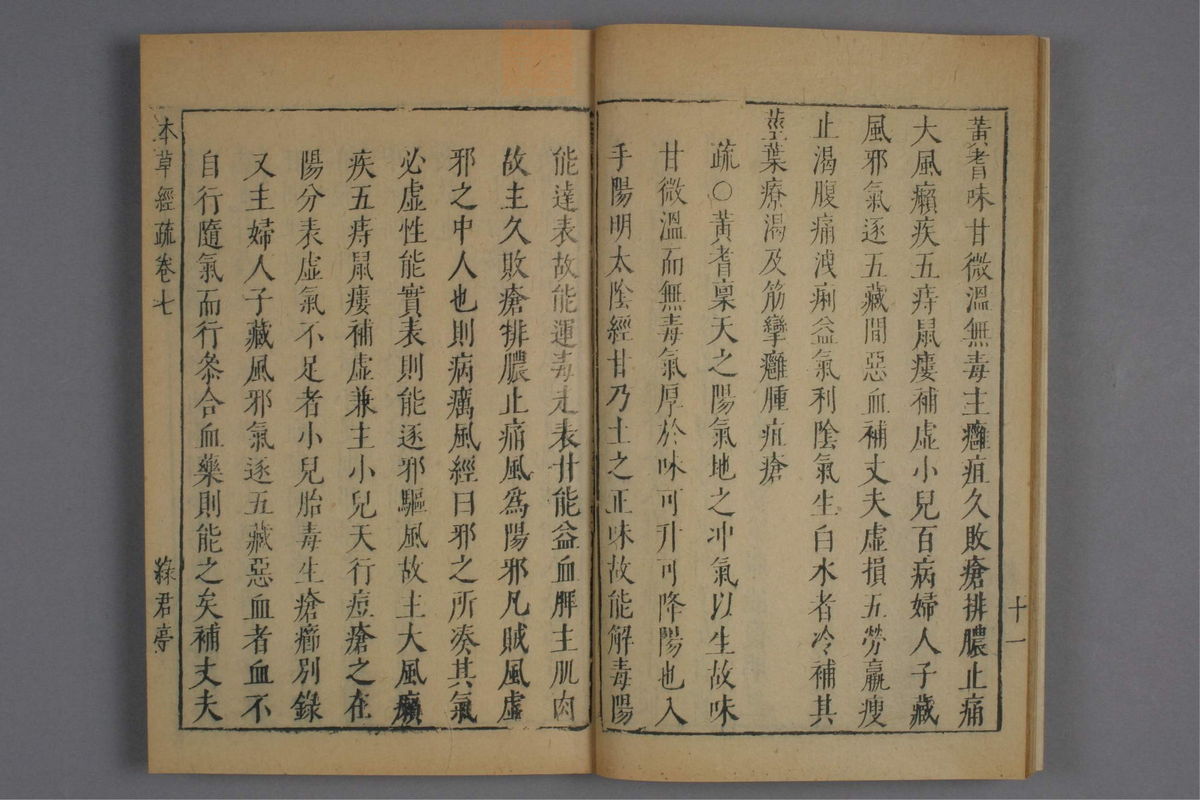 黃耆味甘微溫無毒主癰疽久敗瘡排膿止痛
大風癩疾五痔鼠瘻補虛小兒百病婦人子藏
風邪氣逐五藏間惡血補丈夫虛損五勞羸瘦
止渴腹痛洩痢益氣利陰氣生白水者冷補其
莖葉療渴及筋攣癰腫疽瘡
疏○黃耆稟天之陽氣地之冲氣以生故味
甘微溫而無毒氣厚於味可升可降陽也入
手陽明太陰經甘乃土之正味故能解毒陽
十一
能達表故能運毒走表甘能益血脾主肌肉
故主久敗瘡排膿止痛風爲陽邪凡賊風虛
邪之中人也則病癘風經曰邪之所凑其氣
必虛性能實表則能逐邪驅風故主大風癩
疾五痔鼠瘻補虛兼主小兒天行痘瘡之在
陽分表虛氣不足者小兒胎毒生瘡癤別錄
又主婦人子藏風邪氣逐五藏惡血者血不
自行隨氣而行叅合血藥則能之矣補丈夫
本草經疏卷七
綠君亭